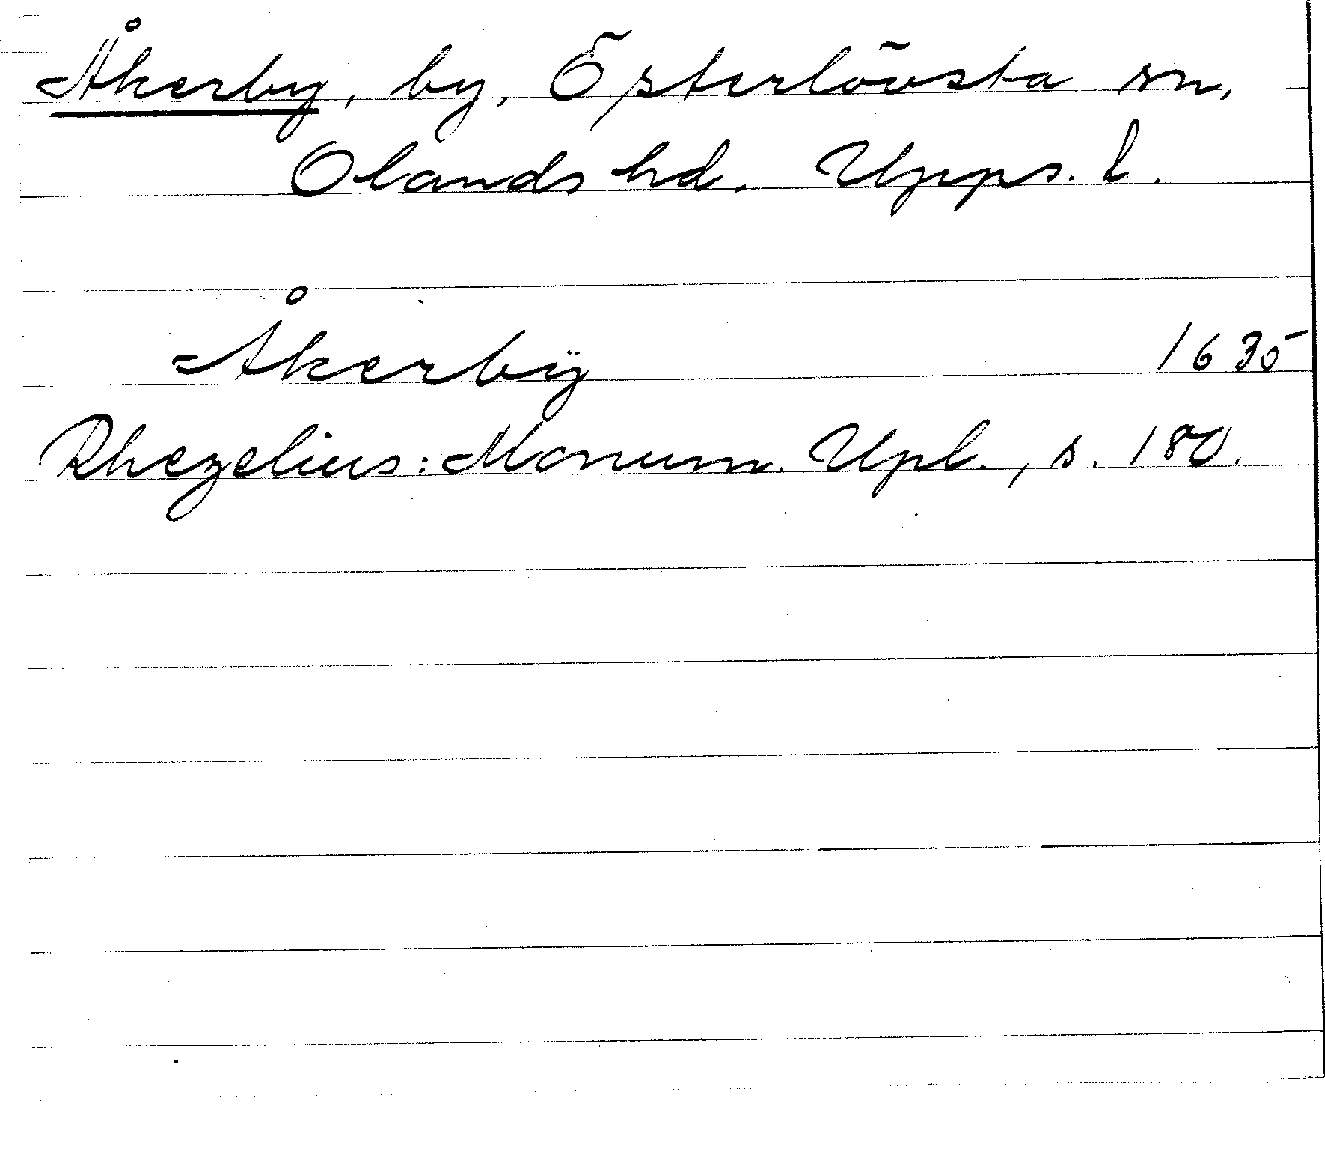 Åkerby, by, Österlövsta sn,
Olands hd. Upps. l.
Åkerbÿ 1635
Rhezelius: Monum. Upl., s. 180.